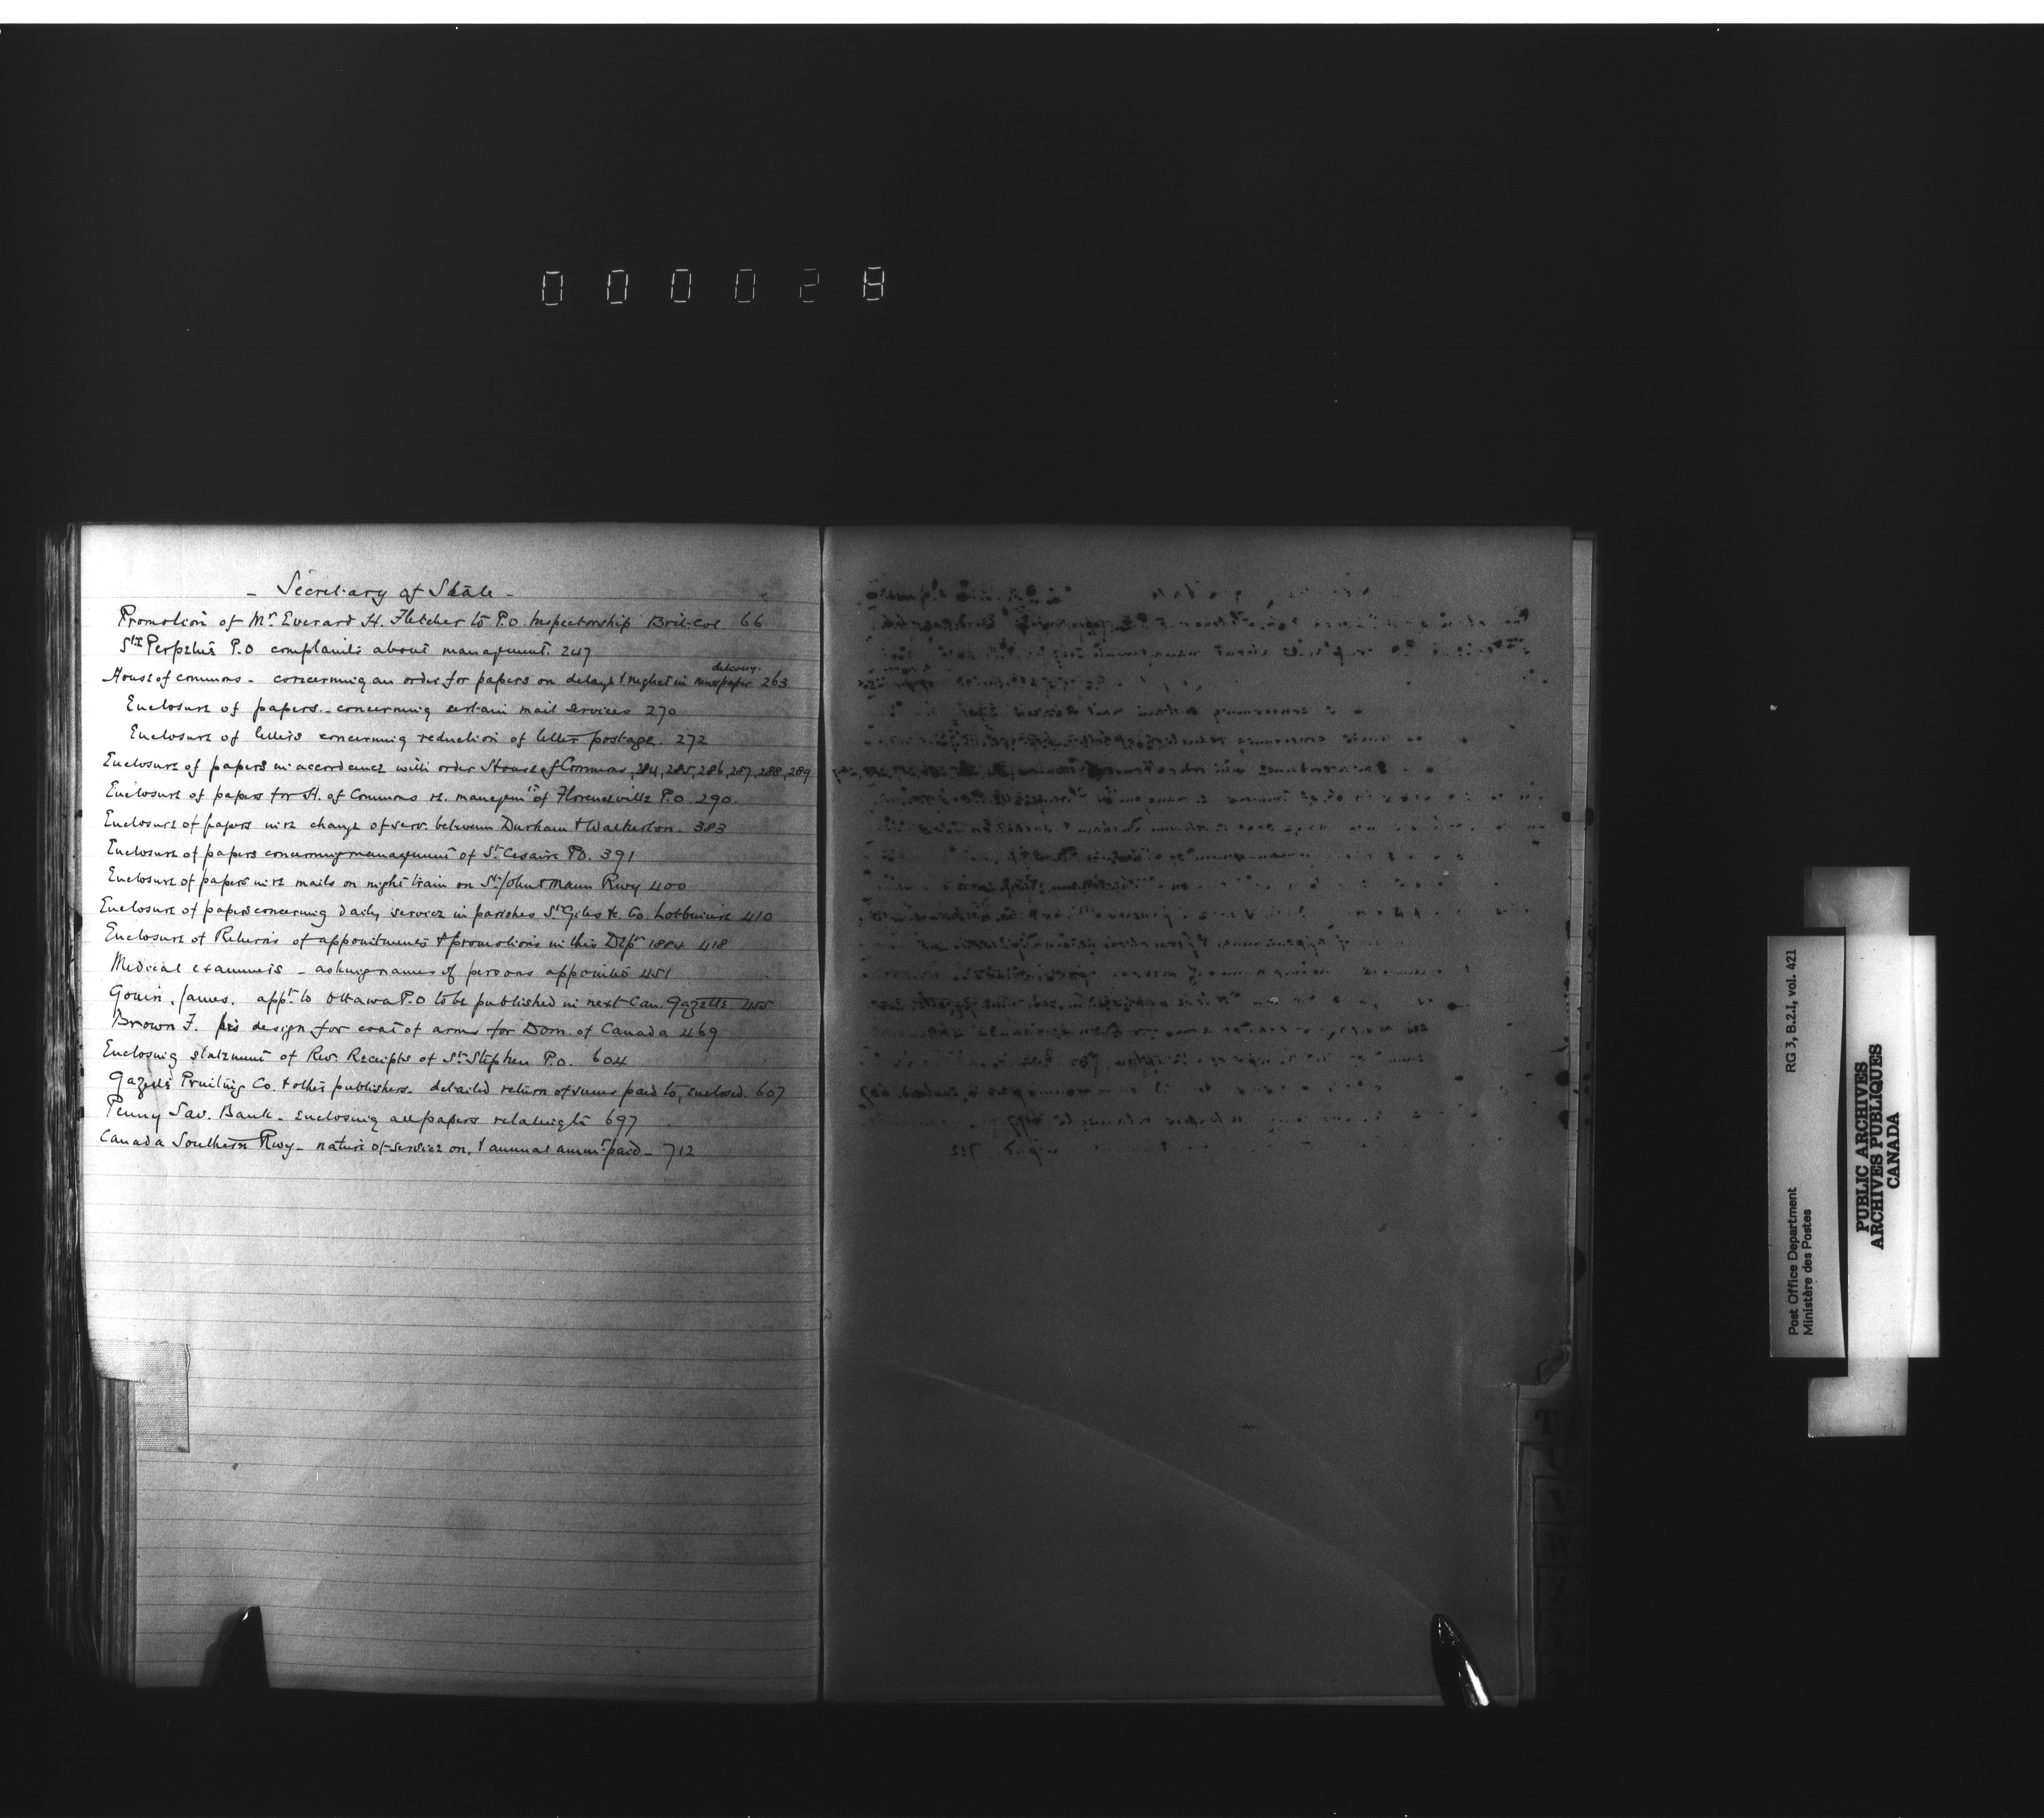 000028
- Secretary of State -
Promotion of Mr. Everard H. Fletcher to P.O. Inspectorship Brit. Col. 66
Ste Perpetue P.O complaints about management. 247
delivery.
House of commons - concerning an order for papers on delays & neglect in newspaper 263
Enclosure of papers - concerning certain mail services 270
Enclosure of letters concerning reduction of letter postage. 272
Enclosure of papers in accordance with order House of Commons, 284, 285, 286, 287, 288, 289
Enclosure of papers for H. of Commons re. managemt of Florenceville P.O. 290.
Enclosure of papers in re change of serv. between Durham & Walkerton. 383
Enclosure of papers concerning management of St. Cesaire P.O. 391
Enclosure of papers in re mails on night train on St. John & Maine Rwy 400
Enclosure of papers concerning daily service in parishes St. Giles &c. Co. Lotbiniere 410
Enclosure of Returns of appointments & promotions in this Dept 1884 418
Medical examiners - asking names of persons appointed 451
Gouin, James. appt. to Ottawa P.O to be published in next Can. Gazette. 455
Brown F. his design for coat of arms for Dom. of Canada 469
Enclosing statement of Rev. Receipts of St. Stephen P.O. 604
Gazette Printing Co. & other publishers - detailed return of sums paid to, enclosed. 607
Penny Sav. Bank - Enclosing all papers relating to 697
Canada Southern Rwy - nature of service on, & annual amnt. paid - 712
T
U
V
W
X
Post Office Department
Ministère des Postes
RG 3, B.2.I, vol. 421
PUBLIC ARCHIVES
ARCHIVES PUBLIQUES
CANADA